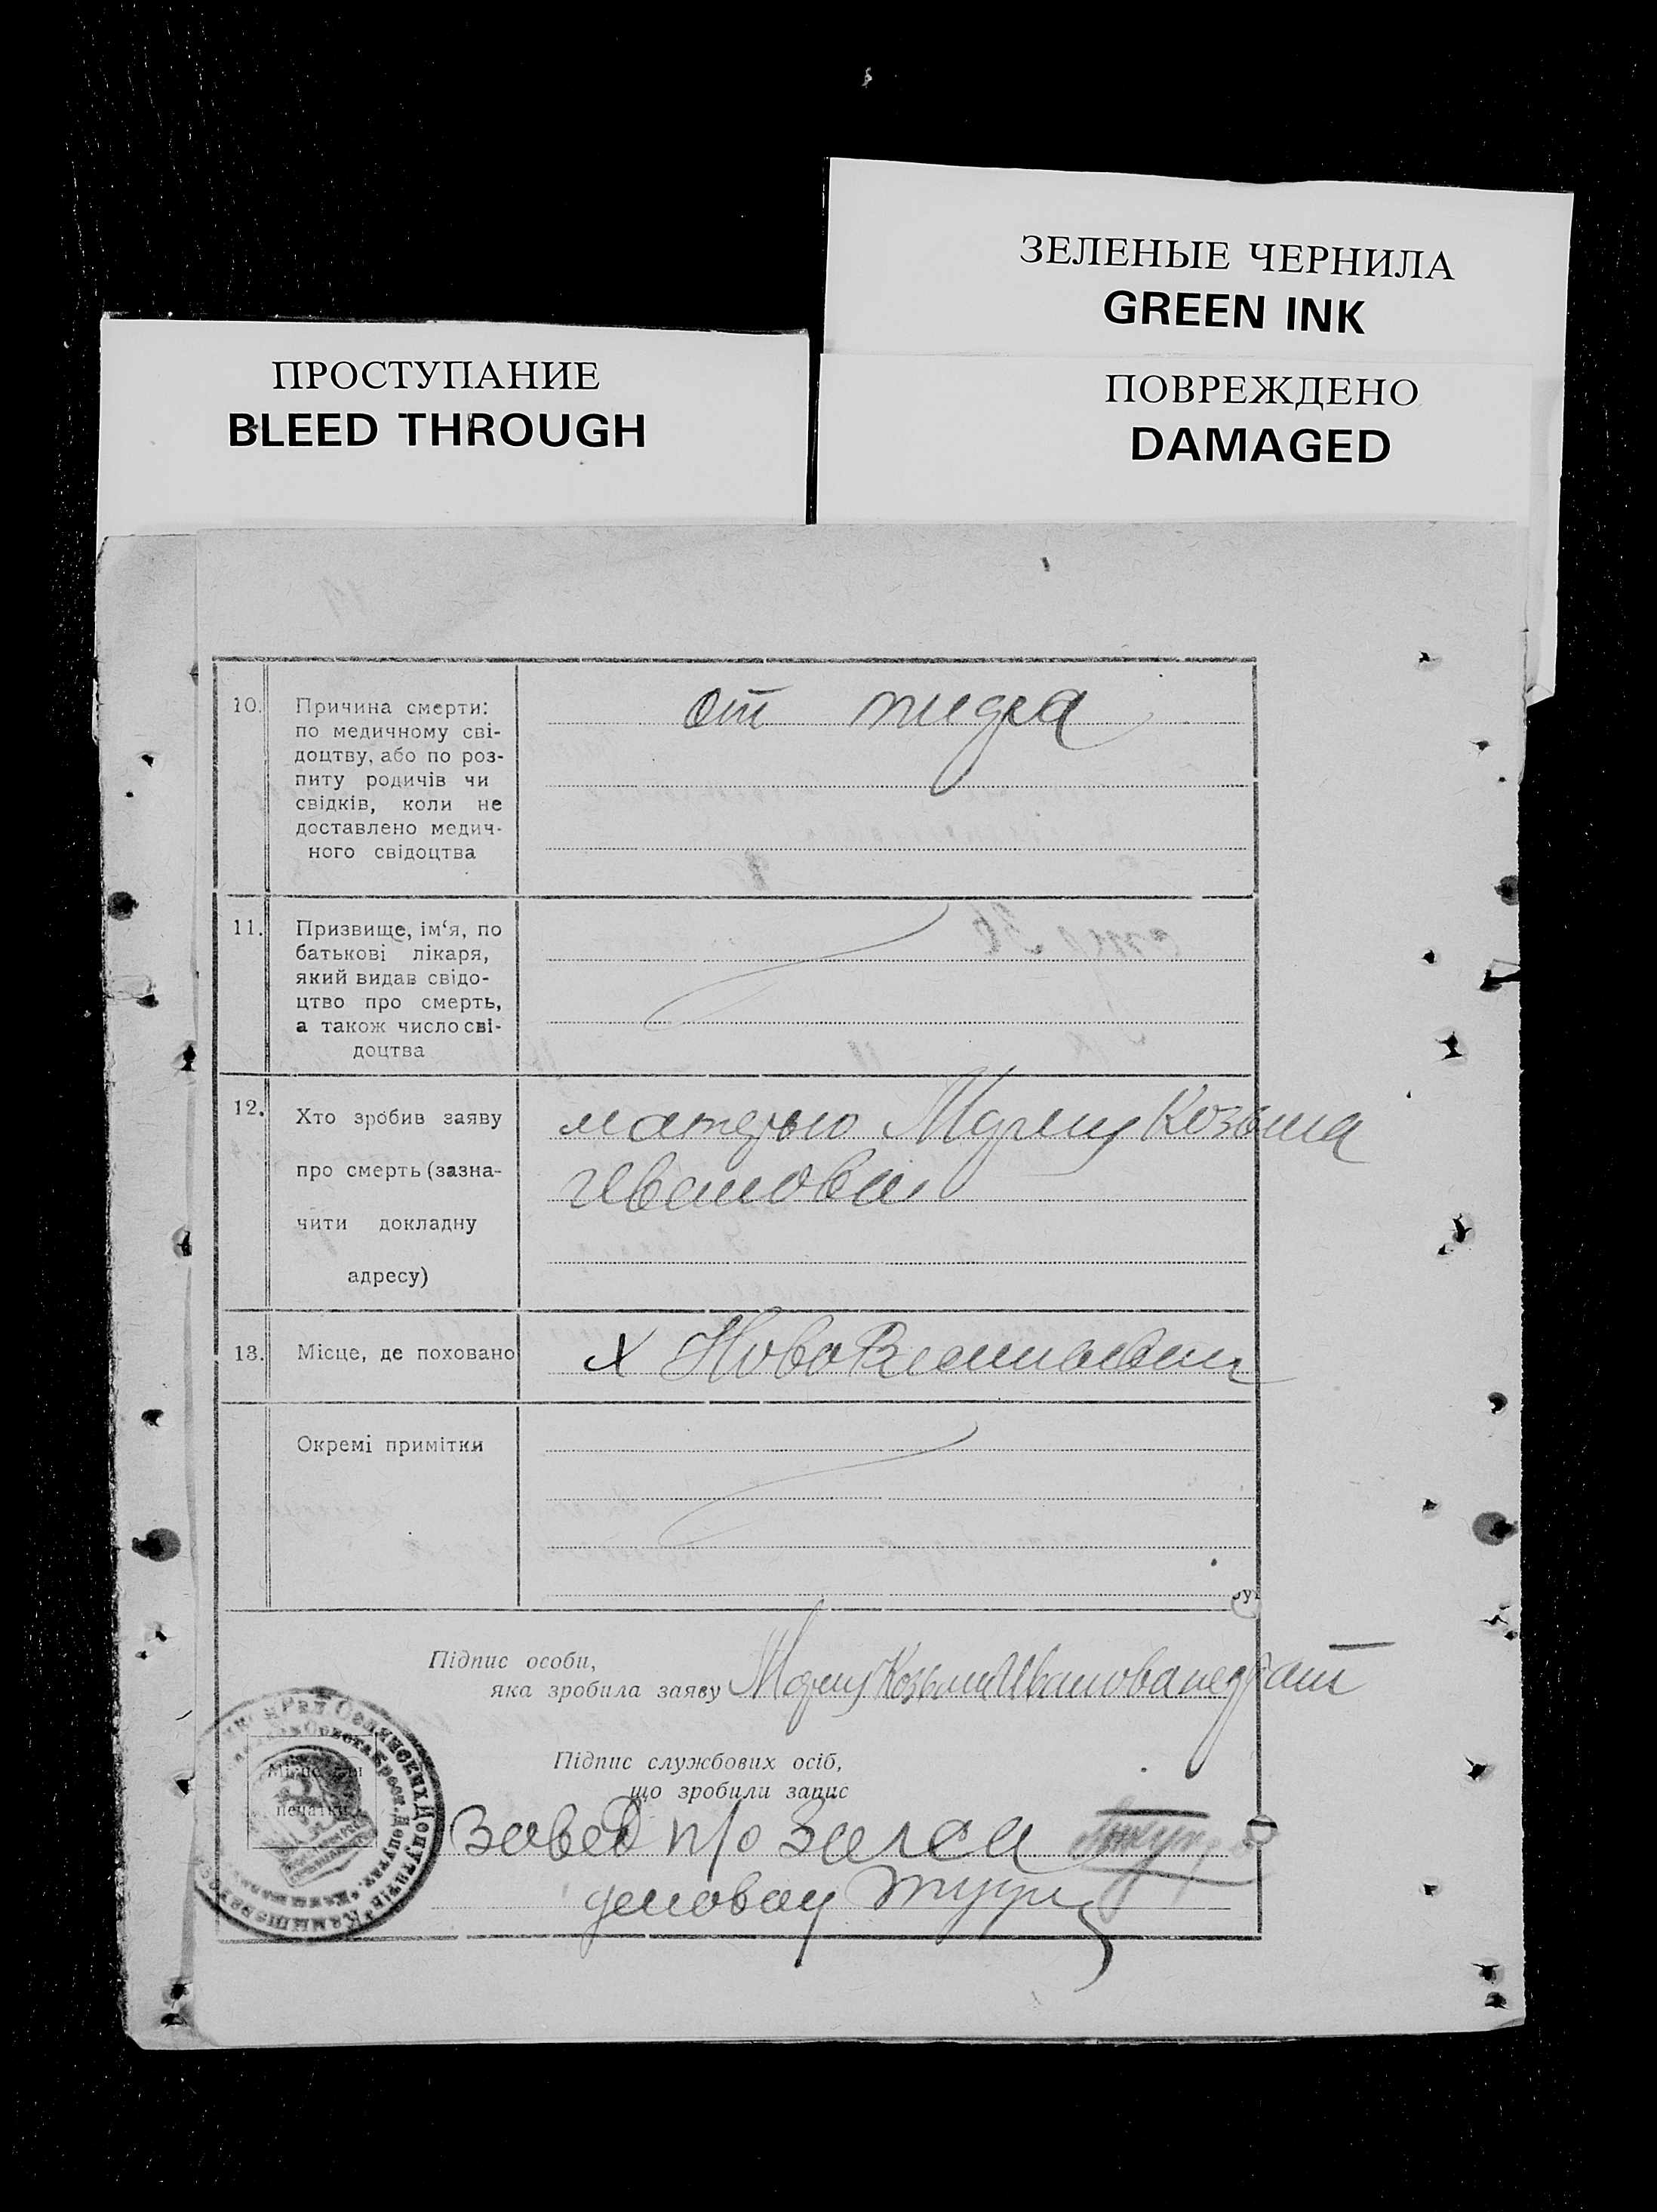 ЗЕЛЕНЫЕ ЧЕРНИЛА
GREEN INK
ПРОСТУПАНИЕ
BLEED THROUGH
ПОВРЕЖДЕНО
DAMAGED
10.
Причина смерти:
по медичному сві-
доцтву, або по роз-
питу родичів чи
свідків, коли не
доставлено медич-
ного свідоцтва
от
11.
Призвище, ім‘я, по
батькові лікаря,
який видав свідо-
цтво про смерть,
а також число сві-
доцтва
12.
Хто зробив заяву
про смерть (зазна-
чити докладну
адресу)
матерью Козьма
Иванова
13.
Місце, де поховано
х
Окремі примітки
Підпис особи,
яка зробила заяву
Підпис службових осіб,
що зробили запис
Місце для
печатки
завед п/о Загса